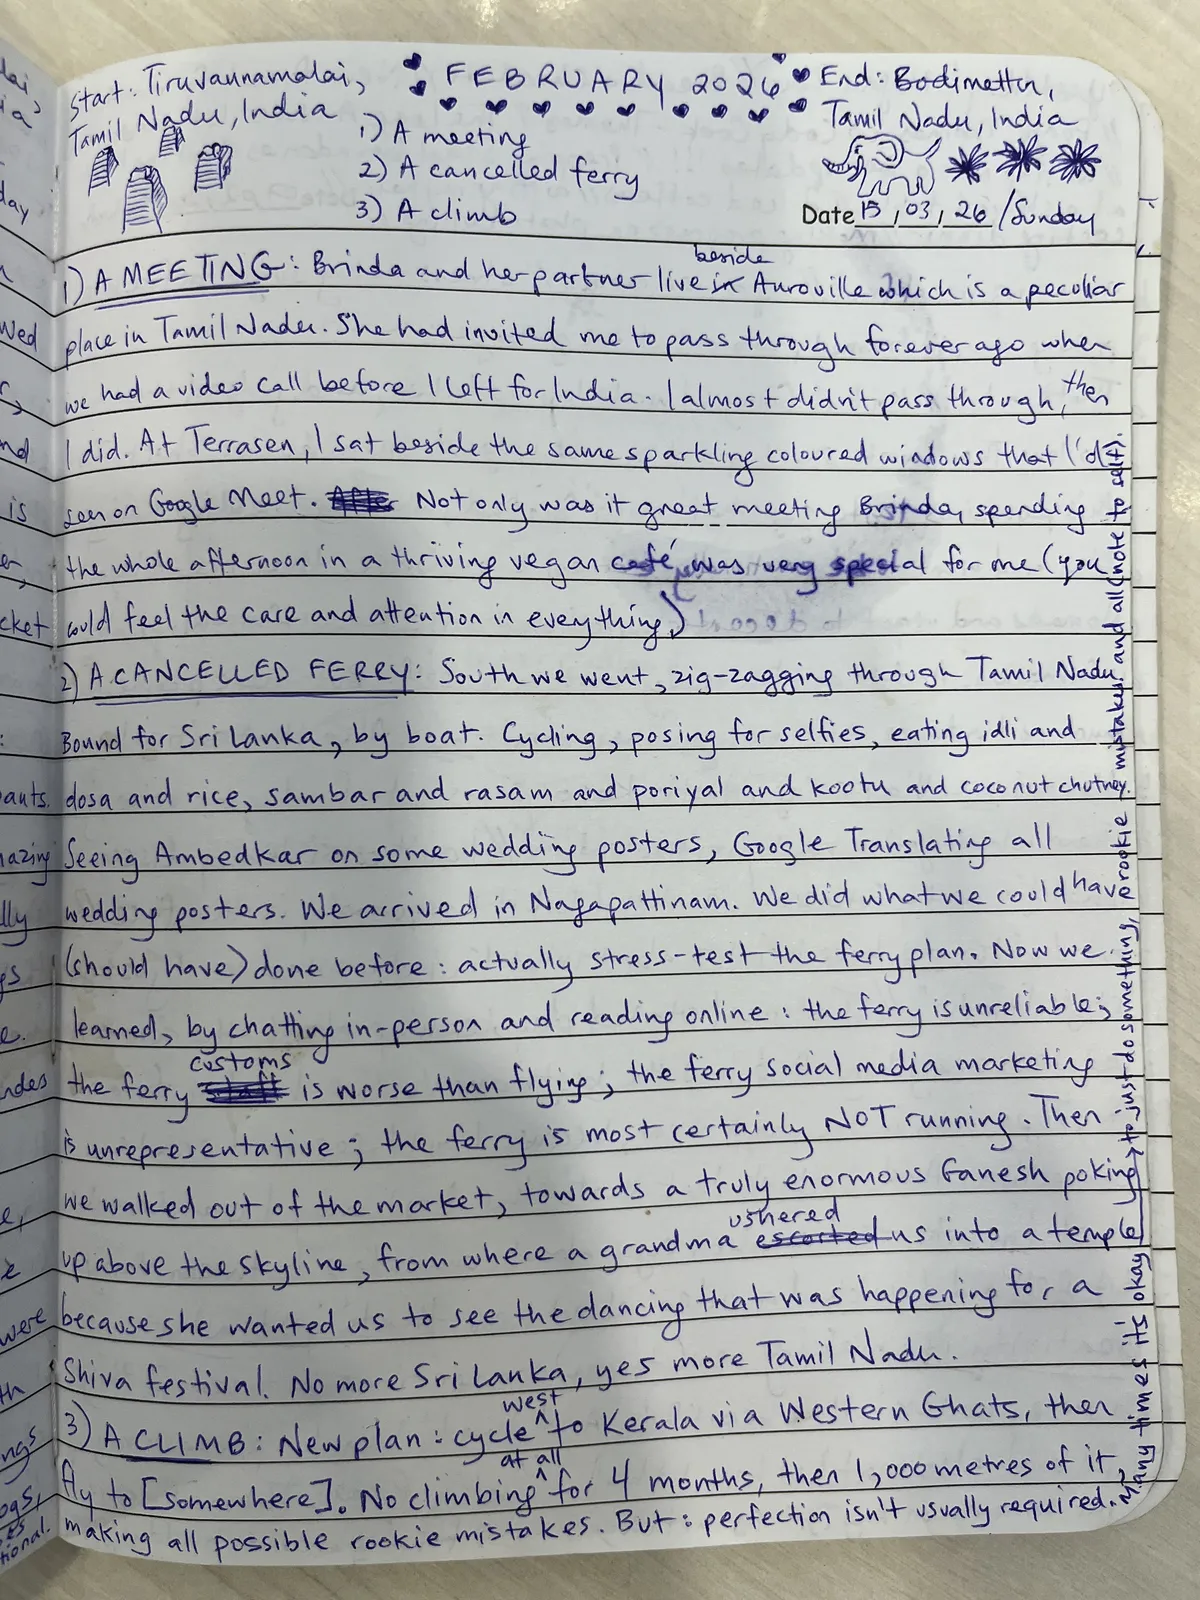 Start: Tiruvannamalai,
Tamil Nadu, India
FEBRUARY 2026
1) A meeting
2) A cancelled ferry
3) A climb
End: Bodimettu,
Tamil Nadu, India
Date 15/03/26 /Sunday
1) A MEETING: Brinda and her partner live beside Auroville which is a peculiar
place in Tamil Nadu. She had invited me to pass through forever ago when
we had a video call before I left for India. I almost didn't pass through, then
I did. At Terrasen, I sat beside the same sparkling coloured windows that I'd
seen on Google Meet. Not only was it great meeting Brinda, spending
the whole afternoon in a thriving vegan café was very special for me (you
could feel the care and attention in everything)
2) A CANCELLED FERRY: South we went, zig-zagging through Tamil Nadu.
Bound for Sri Lanka, by boat. Cycling, posing for selfies, eating idli and
dosa and rice, sambar and rasam and poriyal and kootu and coconut chutney.
Seeing Ambedkar on some wedding posters, Google Translating all
wedding posters. We arrived in Nagapattinam. We did what we could have
(should have) done before: actually stress-test the ferry plan. Now we
learned, by chatting in-person and reading online: the ferry is unreliable;
the ferry customs is worse than flying; the ferry social media marketing
is unrepresentative; the ferry is most certainly NOT running. Then
we walked out of the market, towards a truly enormous Ganesh poking
up above the skyline, from where a grandma ushered us into a temple
because she wanted us to see the dancing that was happening for a
Shiva festival. No more Sri Lanka, yes more Tamil Nadu.
3) A CLIMB: New plan: cycle west to Kerala via Western Ghats, then
fly to [somewhere]. No climbing at all for 4 months, then 1,000 metres of it,
making all possible rookie mistakes. But: perfection isn't usually required.
Many times it's okay to just do something, rookie mistakes and all (note to self).